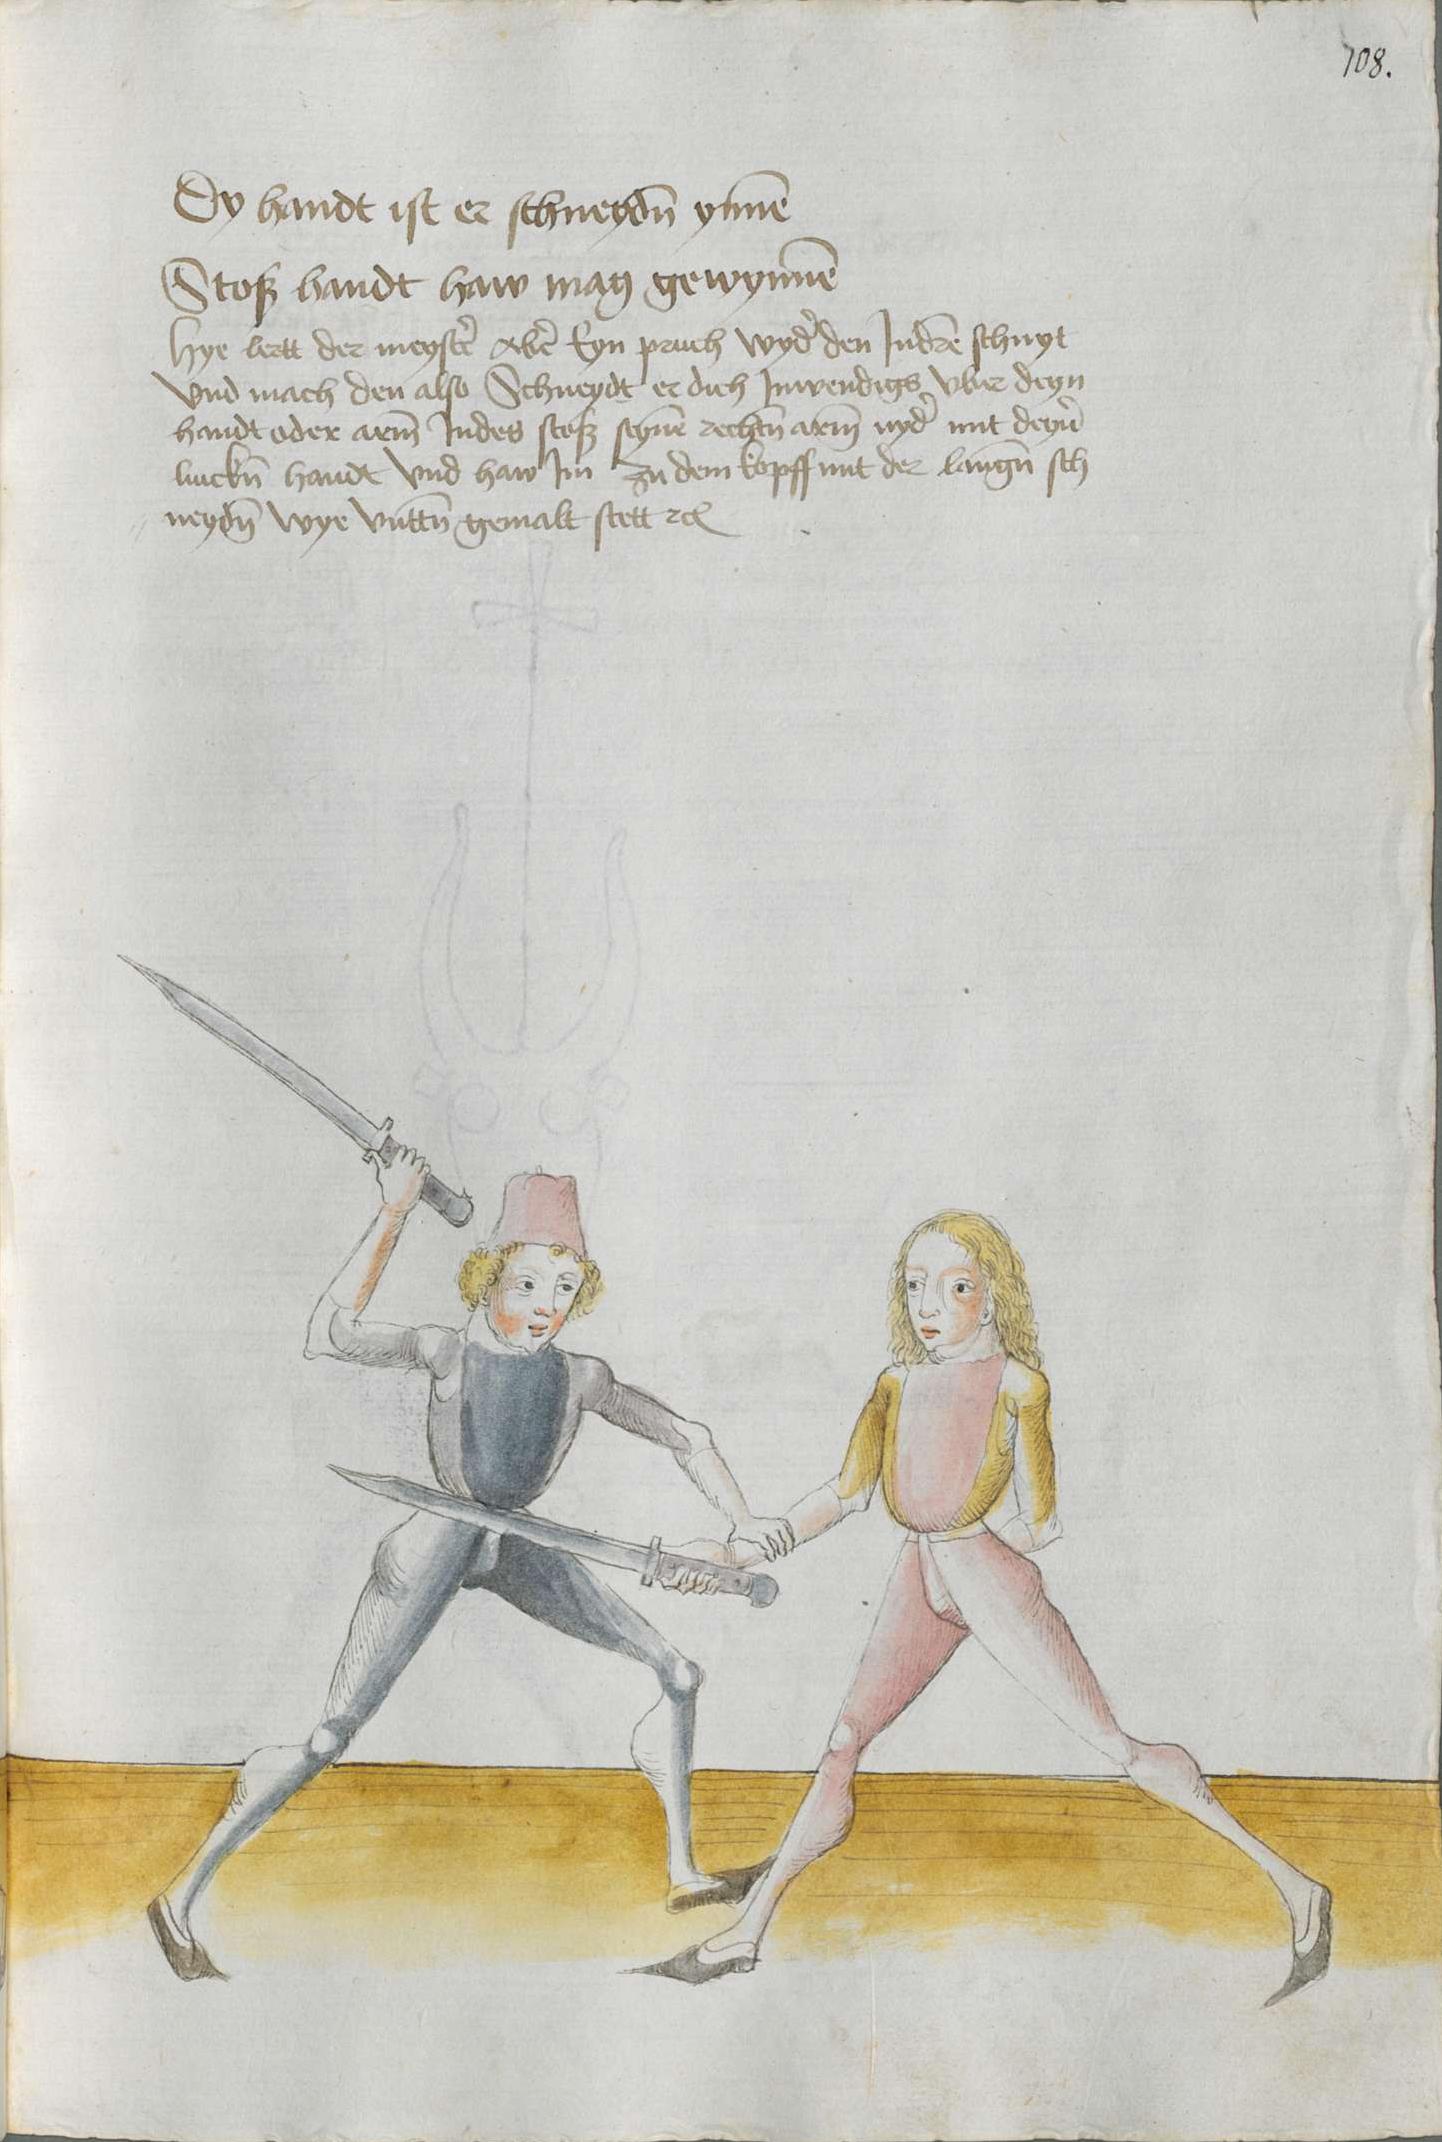 108.
Dy handt ist er schneydn̄ ynnē
Stoß handt haw mag gewynnē
Hye lertt der meyster̄ Aber̄ Eyn pruch wyder̄ den Indrē schnyt
Vnd mach den also Schneydt er dich Inwendigs vber deyn
handt oder arm̄ Indes stoß seynē rechtn̄ arm̄ nyder̄ mit deyner̄
linckn̄ handt Vnd haw Im zu dem kopff mit der langn̄ sch
neydn̄ Wye vnttn̄ gemalt stett